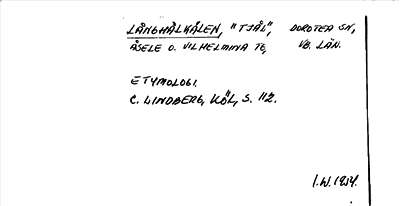 LÅNGHÅLKÅLEN, "TJÅL", DOROTEA SN,
ÅSELE O. VILHELMINA TG, VB. LÄN.
ETYMOLOGI.
C. LINDBERG, KÖL, S. 112.
I.W. 1954.